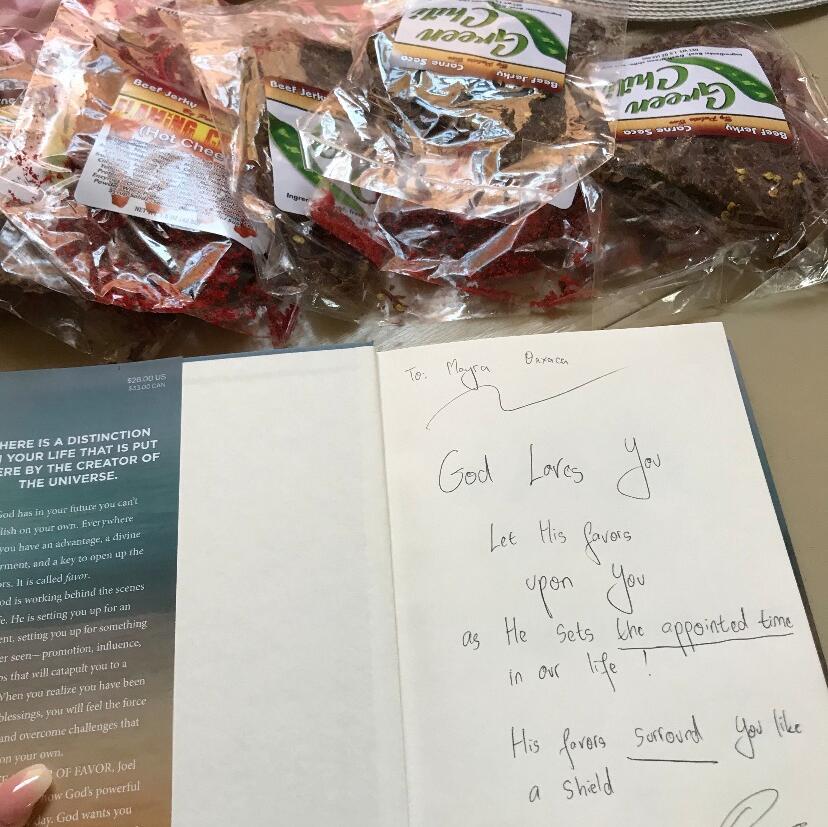 Green
Chili
Carne Seca
Beef Jerky
Green
Chili
Carne Seca
Beef Jerky
Beef Jerky
(Hot Chee
Beef Jerk
$26.00 US
$33.00 CAN
HERE IS A DISTINCTION
YOUR LIFE THAT IS PUT
ERE BY THE CREATOR OF
THE UNIVERSE.
God has in your future you can't
lish on your own. Everywhere
you have an advantage, a divine
rment, and a key to open up the
rs. It is called favor.
od is working behind the scenes
e. He is setting you up for an
ent, setting you up for something
er seen—promotion, influence,
ps that will catapult you to a
When you realize you have been
blessings, you will feel the force
and overcome challenges that
on your own.
OF FAVOR, Joel
how God's powerful
day. God wants you
To: Mayra Oaxaca
God Loves You
Let His favors
upon You
as He sets the appointed time
in our life !
His favors surround you like
a shield